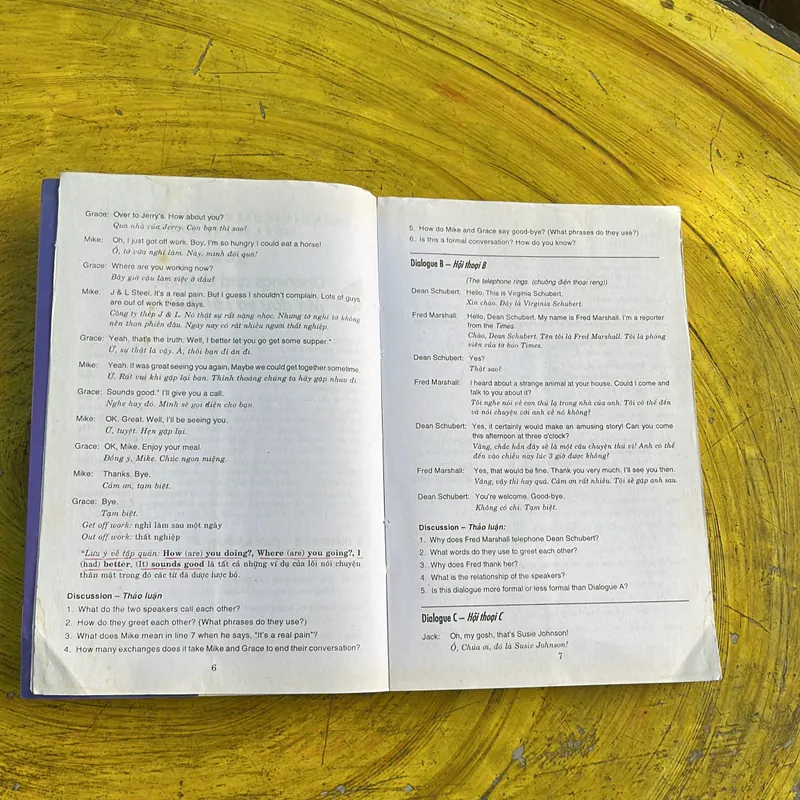 Grace: Over to Jerry's. How about you?
Qua nhà của Jerry. Còn bạn thì sao?
Mike: Oh, I just got off work. Boy, I'm so hungry I could eat a horse!
Ồ, tớ vừa nghỉ làm. Này, mình đói quá!
Grace: Where are you working now?
Bây giờ cậu làm việc ở đâu?
Mike: J & L Steel. It's a real pain. But I guess I shouldn't complain. Lots of guys
are out of work these days.
Công ty thép J & L. Nó thật sự rất nặng nhọc. Nhưng tớ nghĩ tớ không
nên than phiền đâu. Ngày nay có rất nhiều người thất nghiệp.
Grace: Yeah, that's the truth. Well, I better let you go get some supper.*
Ừ, sự thật là vậy. À, thôi bạn đi ăn đi.
Mike: Yeah. It was great seeing you again. Maybe we could get together sometime.
Ừ. Rất vui khi gặp lại bạn. Thỉnh thoảng chúng ta hãy gặp nhau đi.
Grace: Sounds good.* I'll give you a call.
Nghe hay đó. Mình sẽ gọi điện cho bạn.
Mike: OK. Great. Well, I'll be seeing you.
Ừ, tuyệt. Hẹn gặp lại.
Grace: OK, Mike. Enjoy your meal.
Đồng ý, Mike. Chúc ngon miệng.
Mike: Thanks. Bye.
Cảm ơn, tạm biệt.
Grace: Bye.
Tạm biệt.
Get off work: nghỉ làm sau một ngày
Out off work: thất nghiệp
*Lưu ý về tập quán: How (are) you doing?, Where (are) you going?, I
(had) better, (It) sounds good là tất cả những ví dụ của lối nói chuyện
thân mật trong đó các từ đã được lược bỏ.
Discussion – Thảo luận
1. What do the two speakers call each other?
2. How do they greet each other? (What phrases do they use?)
3. What does Mike mean in line 7 when he says, "It's a real pain"?
4. How many exchanges does it take Mike and Grace to end their conversation?
6
5. How do Mike and Grace say good-bye? (What phrases do they use?)
6. Is this a formal conversation? How do you know?
Dialogue B – Hội thoại B
(The telephone rings. (chuông điện thoại reng))
Dean Schubert: Hello. This is Virginia Schubert.
Xin chào. Đây là Virginia Schubert.
Fred Marshall: Hello, Dean Schubert. My name is Fred Marshall. I'm a reporter
from the Times.
Chào, Dean Schubert. Tên tôi là Fred Marshall. Tôi là phóng
viên của tờ báo Times.
Dean Schubert: Yes?
Thật sao?
Fred Marshall: I heard about a strange animal at your house. Could I come and
talk to you about it?
Tôi nghe nói về con thú lạ trong nhà của anh. Tôi có thể đến
và nói chuyện với anh về nó không?
Dean Schubert: Yes, it certainly would make an amusing story! Can you come
this afternoon at three o'clock?
Vâng, chắc hẳn đây sẽ là một câu chuyện thú vị! Anh có thể
đến vào chiều nay lúc 3 giờ được không?
Fred Marshall: Yes, that would be fine. Thank you very much. I'll see you then.
Vâng, vậy thì hay quá. Cảm ơn rất nhiều. Tôi sẽ gặp anh sau.
Dean Schubert: You're welcome. Good-bye.
Không có chi. Tạm biệt.
Discussion – Thảo luận:
1. Why does Fred Marshall telephone Dean Schubert?
2. What words do they use to greet each other?
3. Why does Fred thank her?
4. What is the relationship of the speakers?
5. Is this dialogue more formal or less formal than Dialogue A?
Dialogue C – Hội thoại C
Jack: Oh, my gosh, that's Susie Johnson!
Ồ, Chúa ơi, đó là Susie Johnson!
7